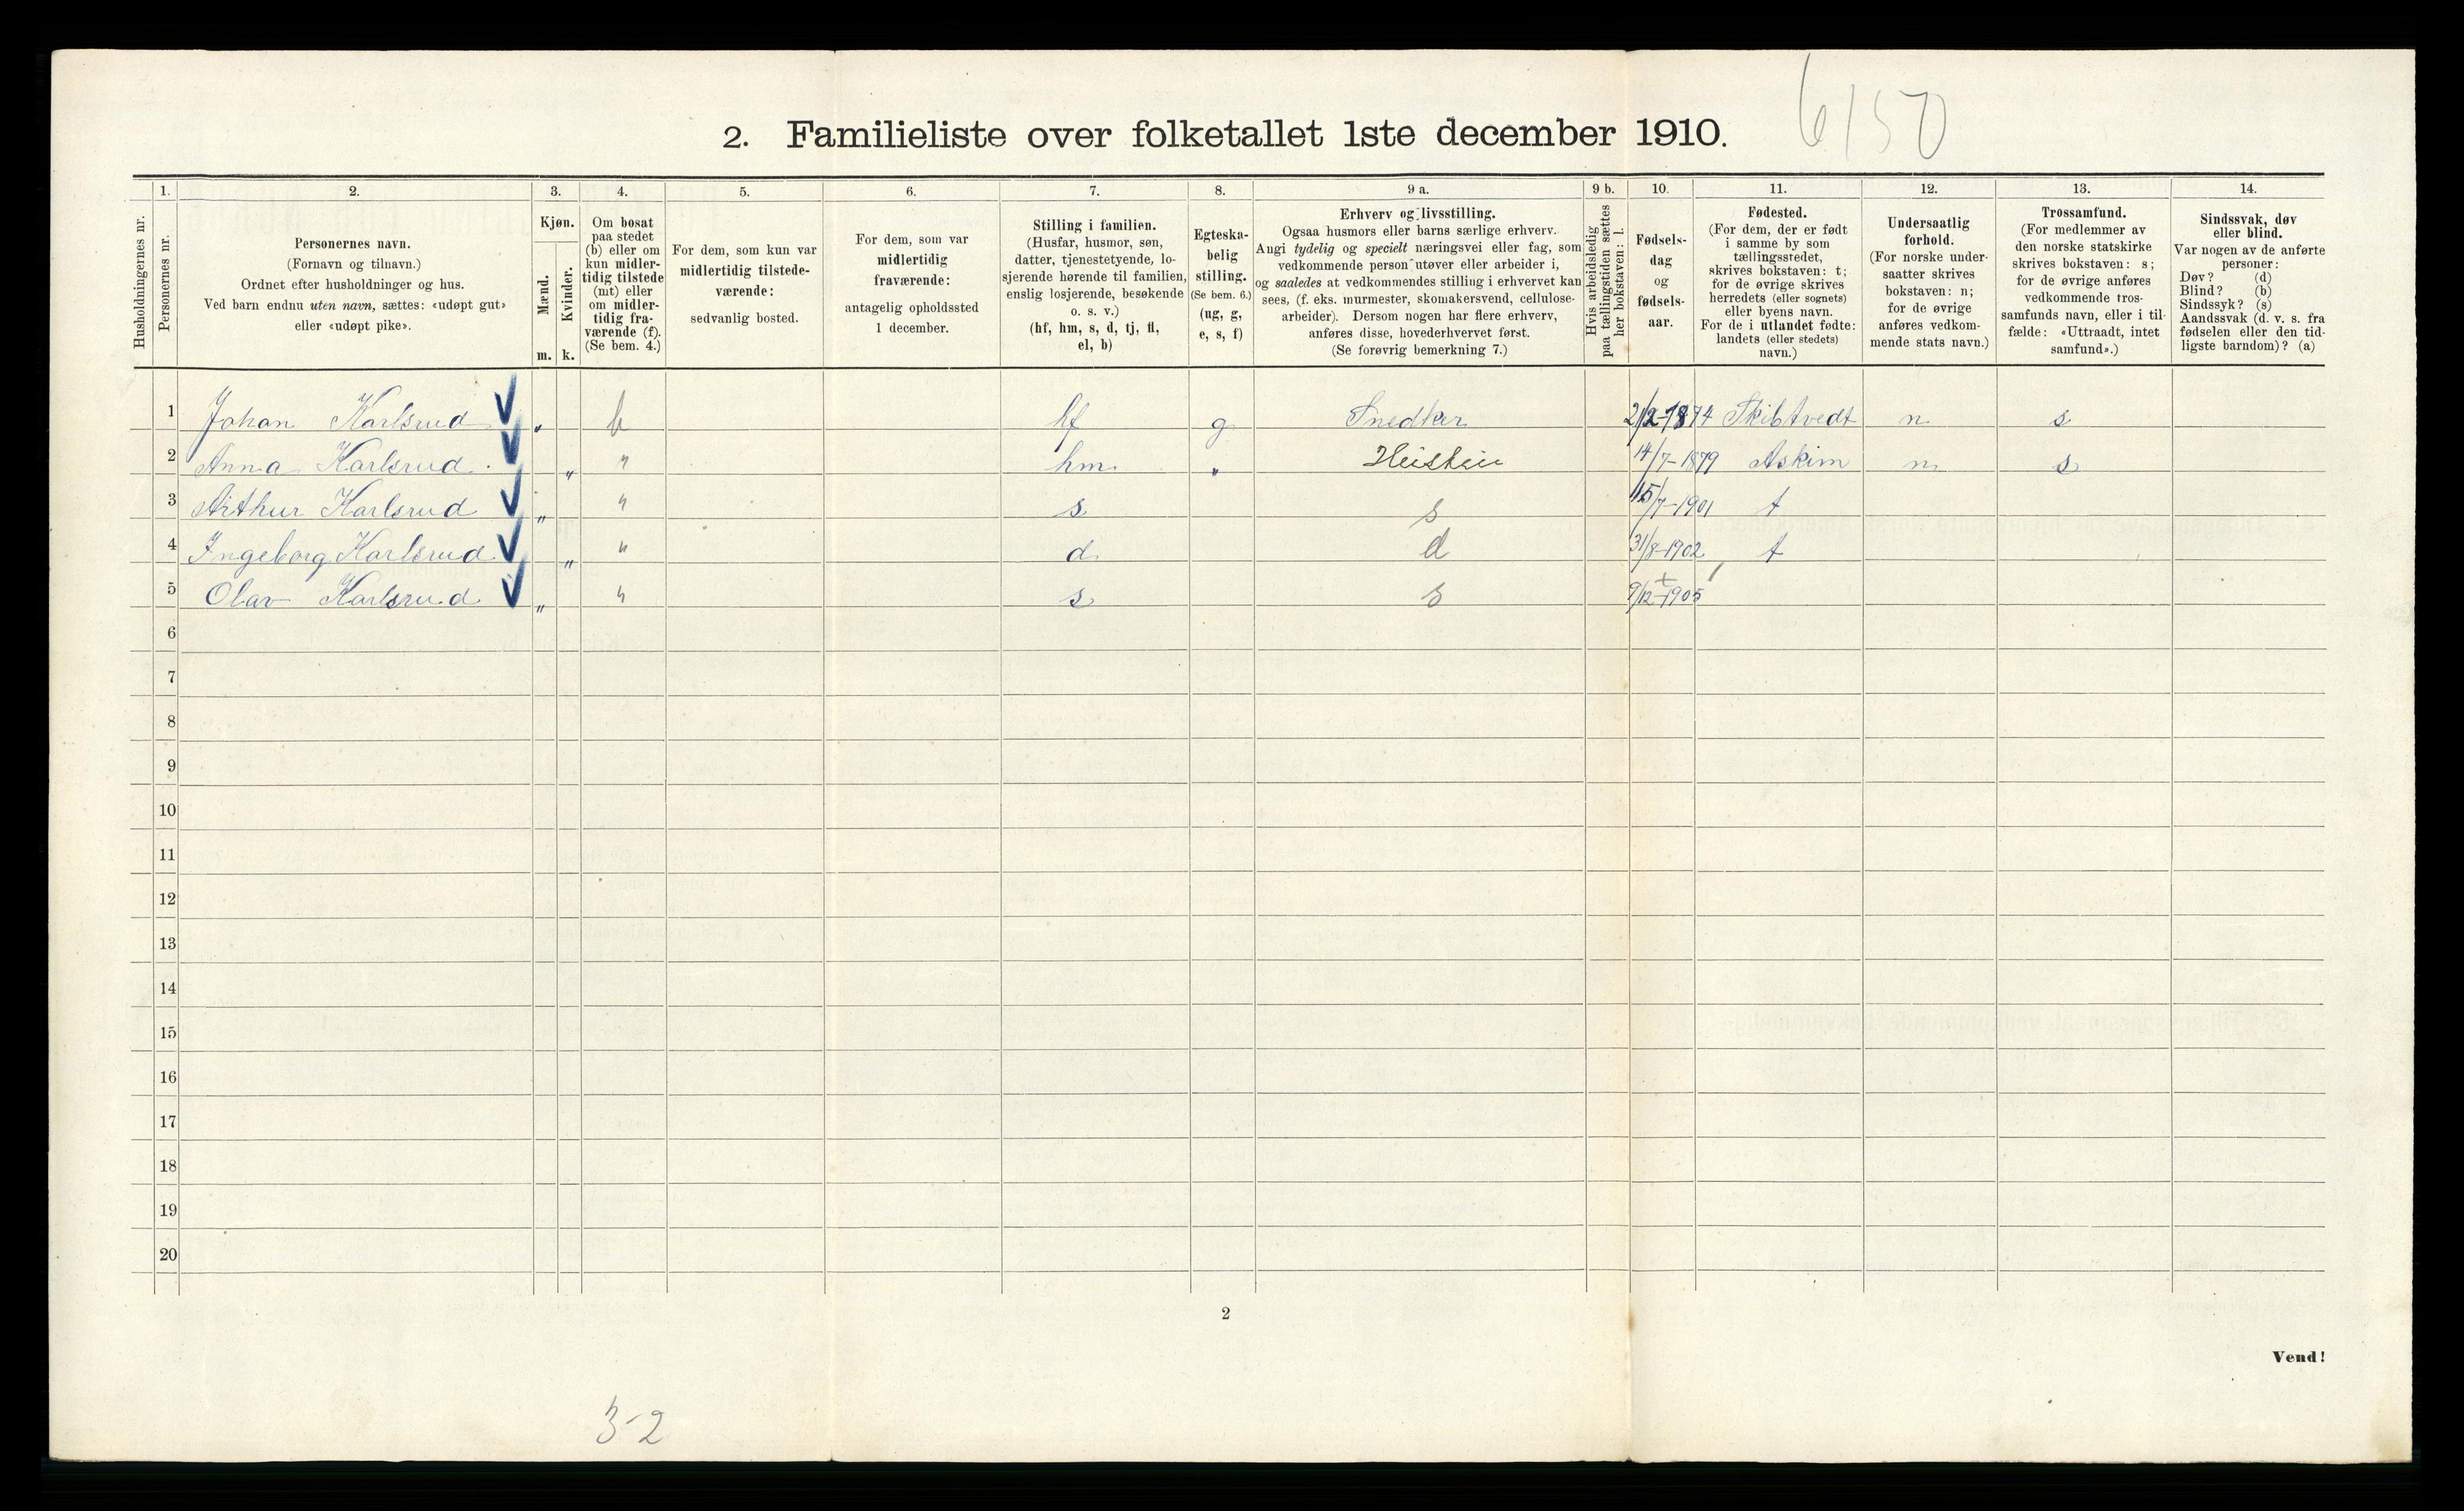 6150
2. Familieliste over folketallet 1ste december 1910.
Husholdningernes nr.
1.
Personernes nr.
2.
Personernes navn.
(Fornavn og tilnavn.)
Ordnet efter husholdninger og hus.
Ved barn endnu uten navn, sættes: «udøpt gut»
eller «udøpt pike».
3.
Kjøn.
Mænd.
Kvinder.
m. k.
4.
Om bosat
paa stedet
(b) eller om
kun midler-
tidig tilstede
(mt) eller
om midler-
tidig fra-
værende (f).
(Se bem. 4.)
5.
For dem, som kun var
midlertidig tilstede-
værende:
sedvanlig bosted.
6.
For dem, som var
midlertidig
fraværende:
antagelig opholdssted
1 december.
7.
Stilling i familien.
(Husfar, husmor, søn,
datter, tjenestetyende, lo-
sjerende hørende til familien,
enslig losjerende, besøkende
o. s. v.)
(hf, hm, s, d, tj, fl,
el, b)
8.
Egteska-
belig
stilling.
(Se bem. 6.)
(ug, g,
e, s, f)
9 a.
Erhverv og livsstilling.
Ogsaa husmors eller barns særlige erhverv.
Angi tydelig og specielt næringsvei eller fag, som
vedkommende person utøver eller arbeider i,
og saaledes at vedkommendes stilling i erhvervet kan
sees, (f. eks. murmester, skomakersvend, cellulose-
arbeider). Dersom nogen har flere erhverv,
anføres disse, hovederhvervet først.
(Se forøvrig bemerkning 7.)
9 b.
Hvis arbeidsledig
paa tællingstiden sættes
her bokstaven: l.
10.
Fødsels-
dag
og
fødsels-
aar.
11.
Fødested.
(For dem, der er født
i samme by som
tællingsstedet,
skrives bokstaven: t;
for de øvrige skrives
herredets (eller sognets)
eller byens navn.
For de i utlandet fødte:
landets (eller stedets)
navn.)
12.
Undersaatlig
forhold.
(For norske under-
saatter skrives
bokstaven: n;
for de øvrige
anføres vedkom-
mende stats navn.)
13.
Trossamfund.
(For medlemmer av
den norske statskirke
skrives bokstaven: s;
for de øvrige anføres
vedkommende tros-
samfunds navn, eller i til-
fælde: «Uttraadt, intet
samfund».)
14.
Sindssvak, døv
eller blind.
Var nogen av de anførte
personer:
Døv? (d)
Blind? (b)
Sindssyk? (s)
Aandssvak (d. v. s. fra
fødselen eller den tid-
ligste barndom)? (a)
1 Johan Karlsrud „ b hf g Snedker 21/2-1874 Skibtvedt n s
2 Anna Karlsrud „ " hm „ 14/7-1879 Askim n s
3 Arthur Karlsrud „ " s s 15/7-1901 t
4 Ingeborg Karlsrud „ " d d 31/8-1902 t
5 Olav Karlsrud „ " s s 9/12-1905
6
7
8
9
10
11
12
13
14
15
16
17
18
19
20
2
Vend!
3-2